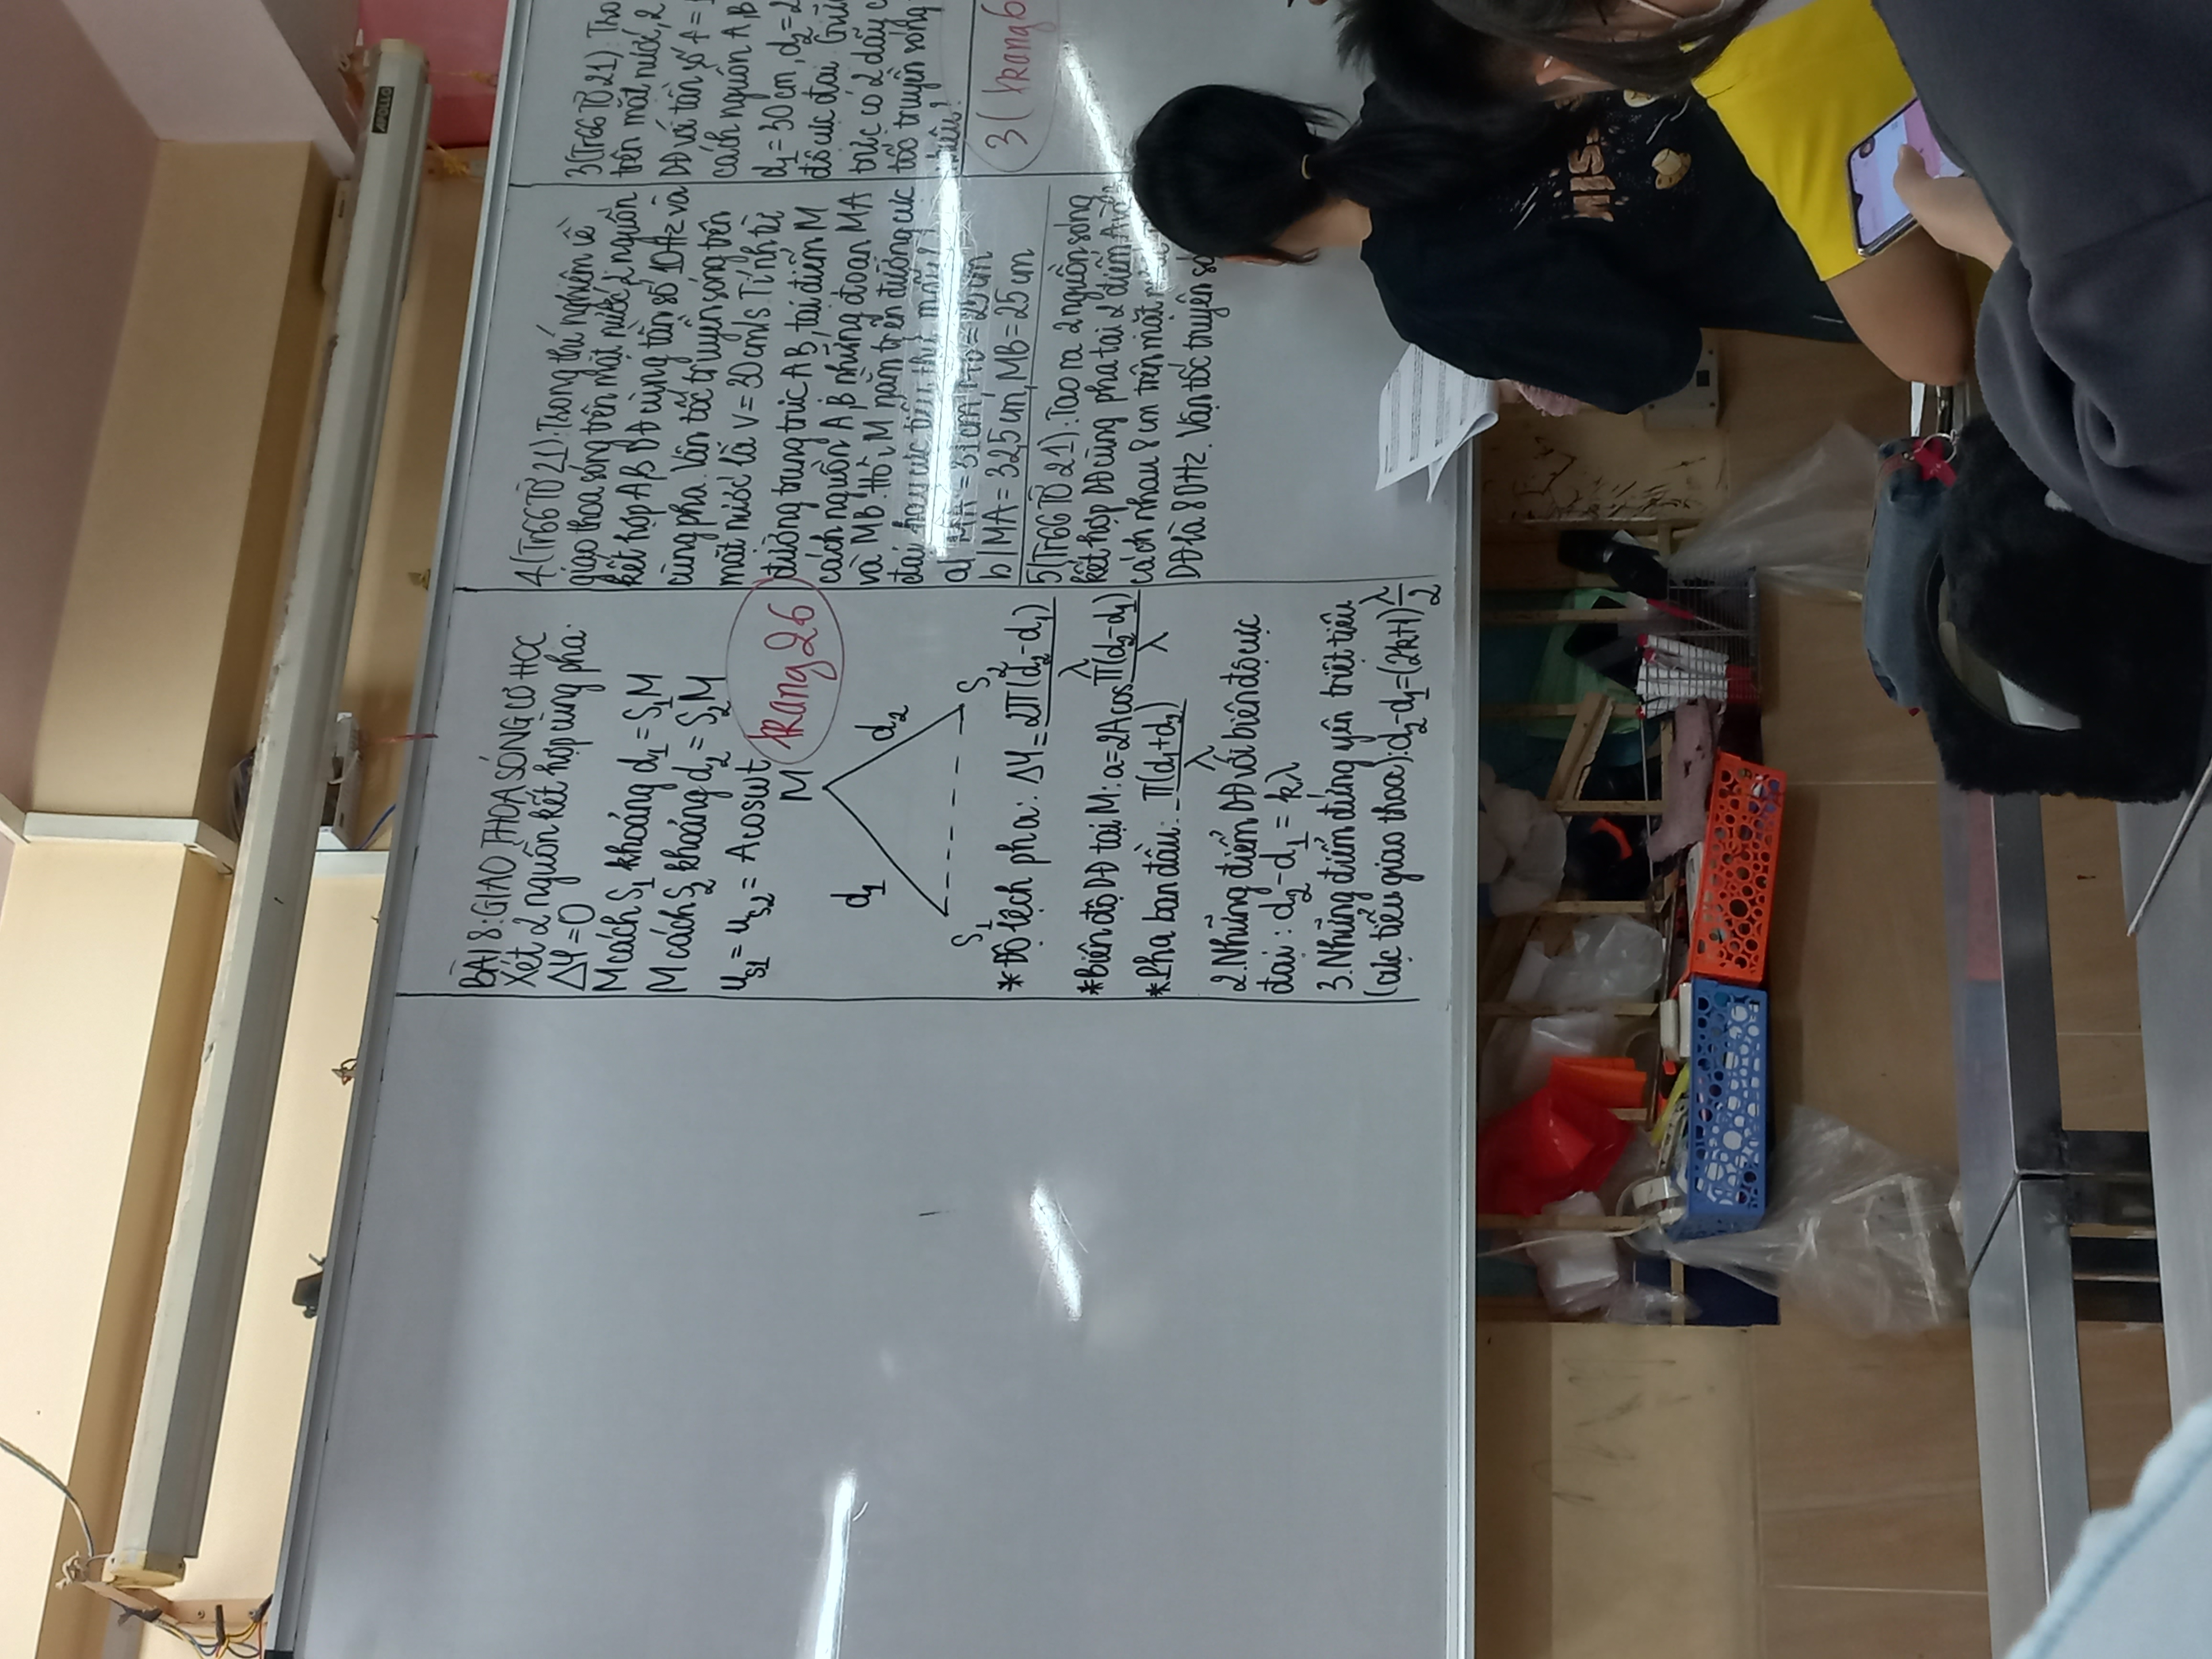 APOLLO
BÀI 8: GIAO THOA SÓNG CƠ HỌC
Xét 2 nguồn kết hợp cùng pha:
Δφ=0
M cách S₁ khoảng d₁ = S₁M
M cách S₂ khoảng d₂ = S₂M
u_S1 = u_S2 = Acosωt
trang 26
M
d₁
d₂
S₁
S₂
*Độ lệch pha: Δφ = 2π(d₂-d₁)/λ
*Biên độ DĐ tại M: a=2Acos π(d₂-d₁)/λ
*Pha ban đầu: -π(d₁+d₂)/λ
2.Những điểm DĐ với biên độ cực
đại: d₂-d₁ = kλ
3.Những điểm đứng yên triệt tiêu
(cực tiểu giao thoa): d₂-d₁=(2k+1)λ/2
4(Tr66 TỜ 21): Trong thí nghiệm về
giao thoa sóng trên mặt nước, 2 nguồn
kết hợp A,B DĐ cùng tần số 10Hz và
cùng pha. Vận tốc truyền sóng trên
mặt nước là v = 30cm/s Tính từ
đường trung trực AB, tại điểm M
cách nguồn A,B những đoạn MA
và MB. Hỏi M nằm trên đường cực
đại hay cực tiểu thứ mấy?
a/ MA = 31cm, MB = 25cm
b/ MA = 32,5cm, MB = 25cm
5(Tr66 TỜ 21): Tạo ra 2 nguồn sóng
kết hợp DĐ cùng pha tại 2 điểm A và
cách nhau 8cm trên mặt
DĐ là 80Hz. Vận tốc truyền só
3(Tr66 TỜ 21): Tro
trên mặt nước, 2
DĐ với tần số f =
cách nguồn A,B
d₁ = 30cm, d₂ = 2
độ cực đại. Giữ
trực có 2 dãy c
tốc truyền sóng
nhiêu?
3( trang 6
MIS